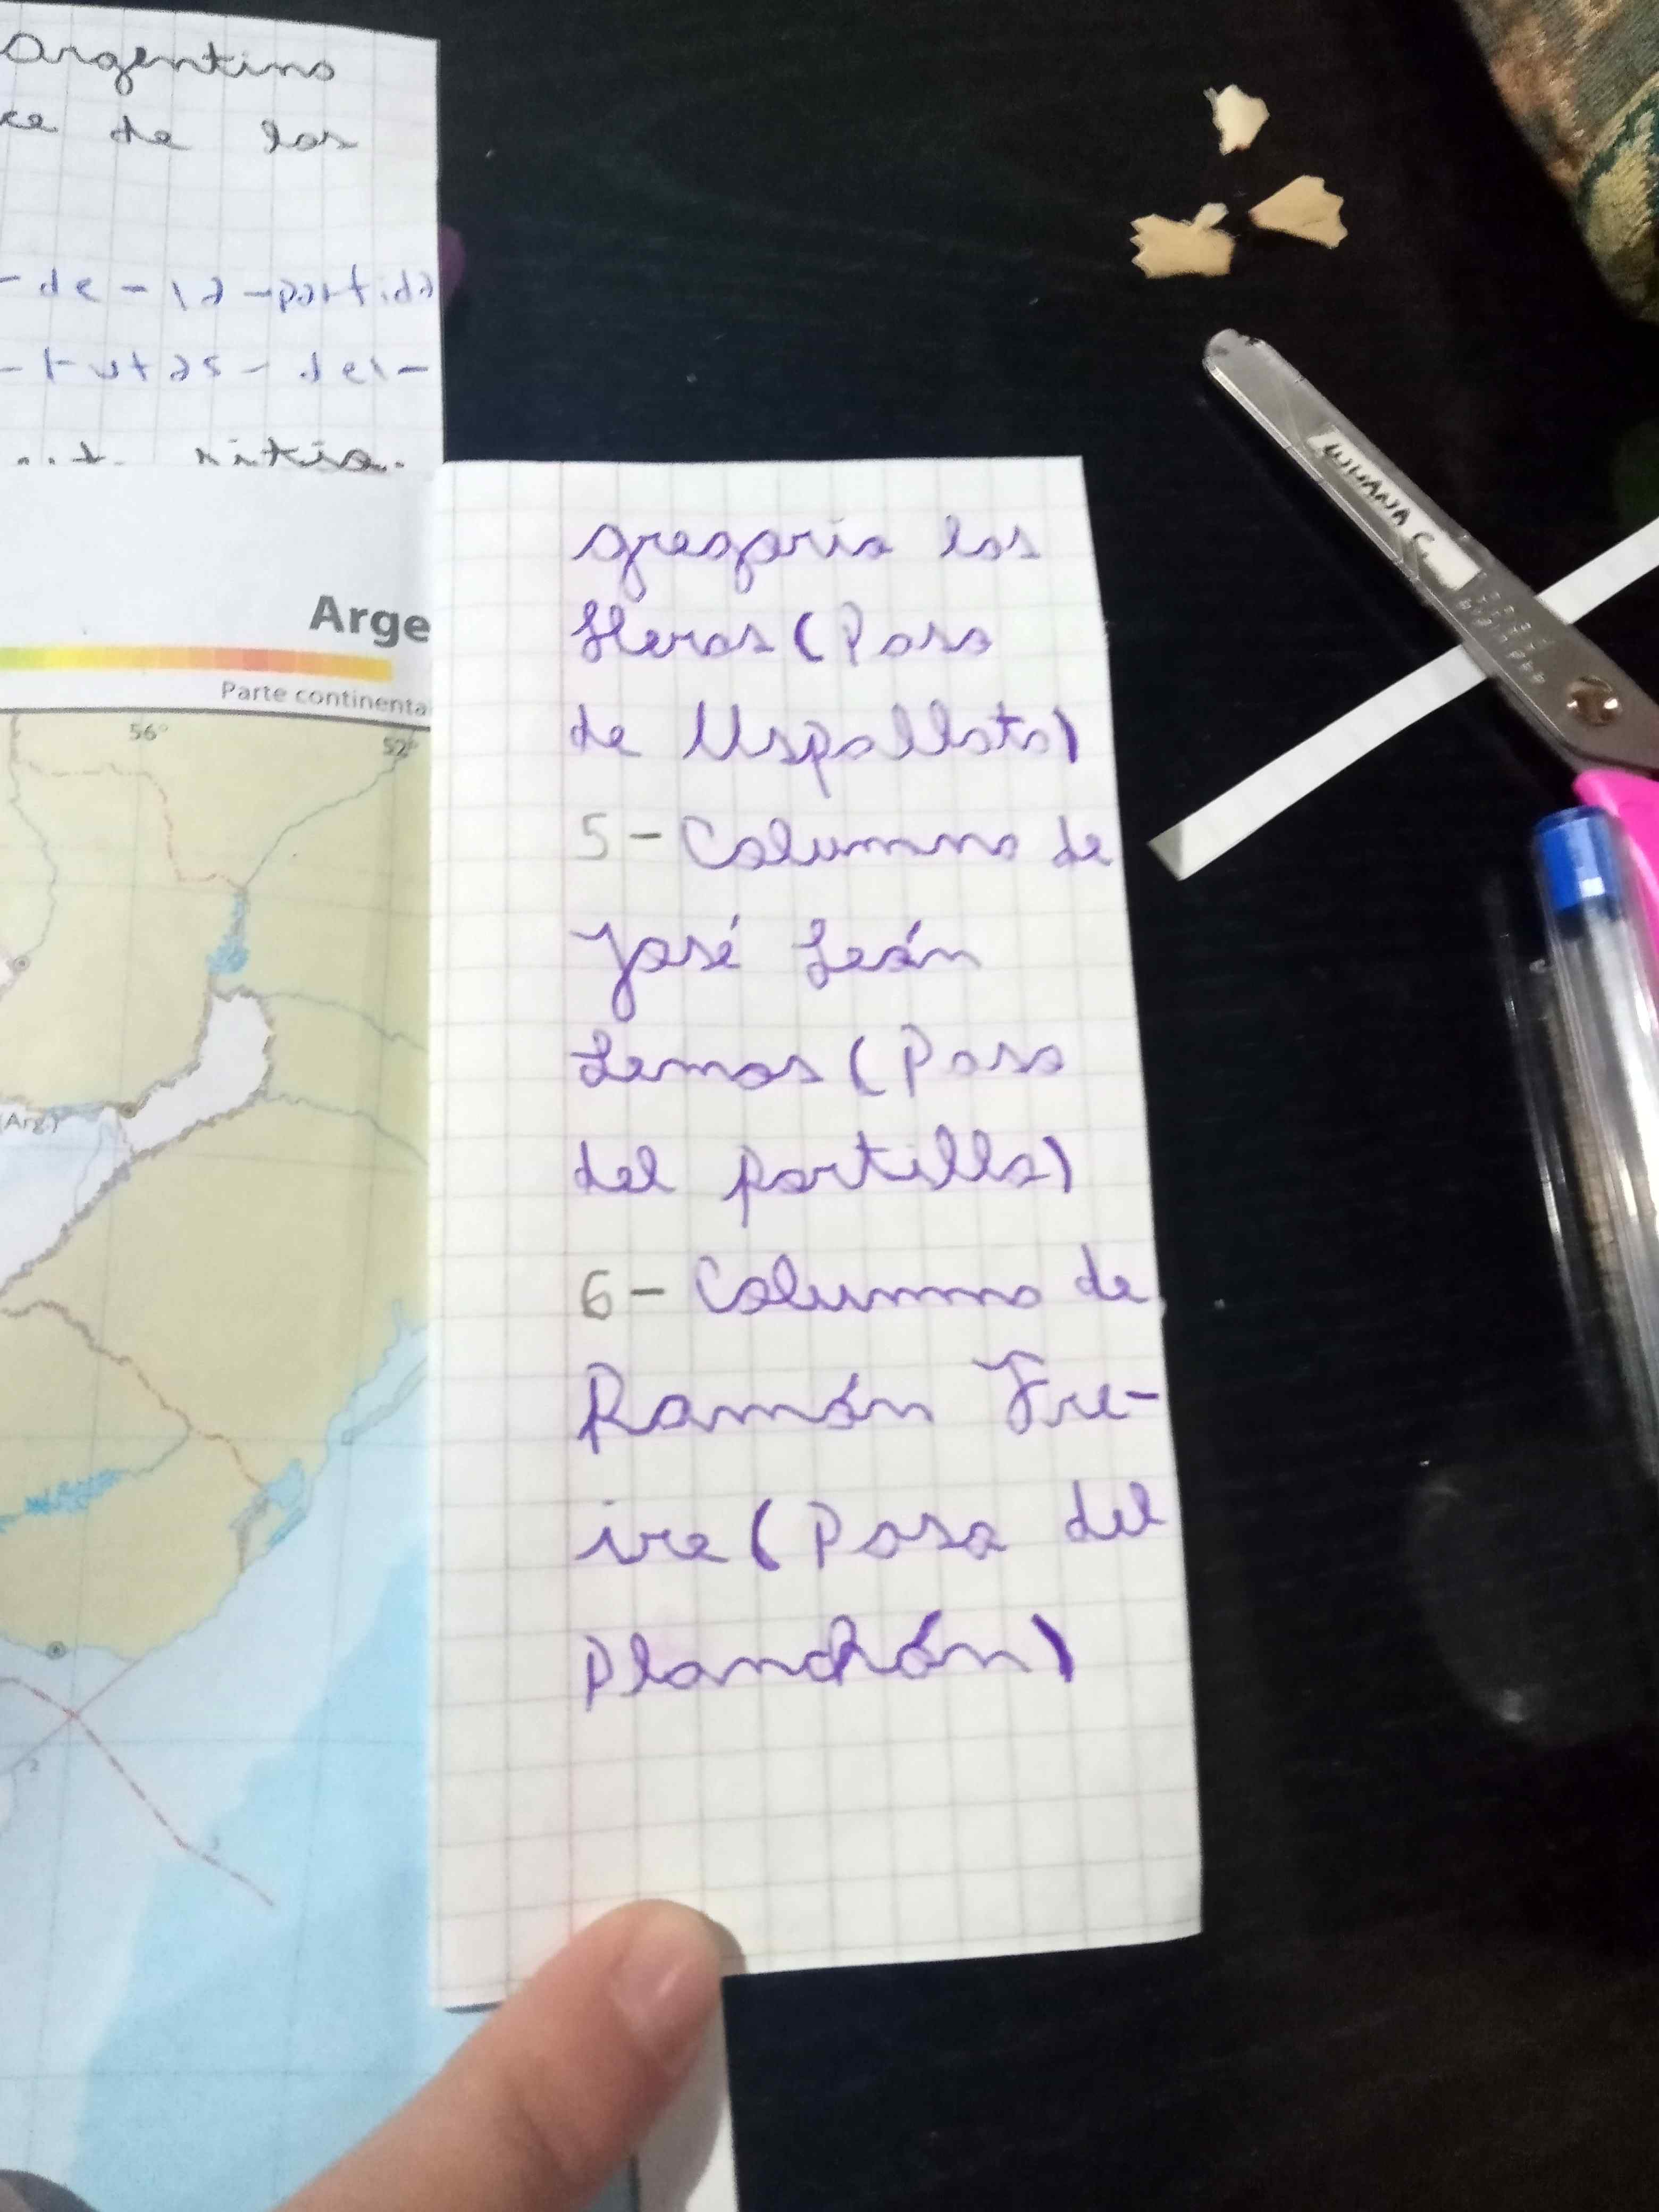 Argentino
ce de los
-de-la-partida
-rutas-del-
sitio.
Arge
Parte continenta
56°
52°
(Arg.)
gregorio las
Heras (Paso
de Uspallata)
5- Columna de
José León
Lemos (Paso
del portillo)
6- Columna de
Ramón Fre-
ire (Paso del
Planchón)
LUHANA C.